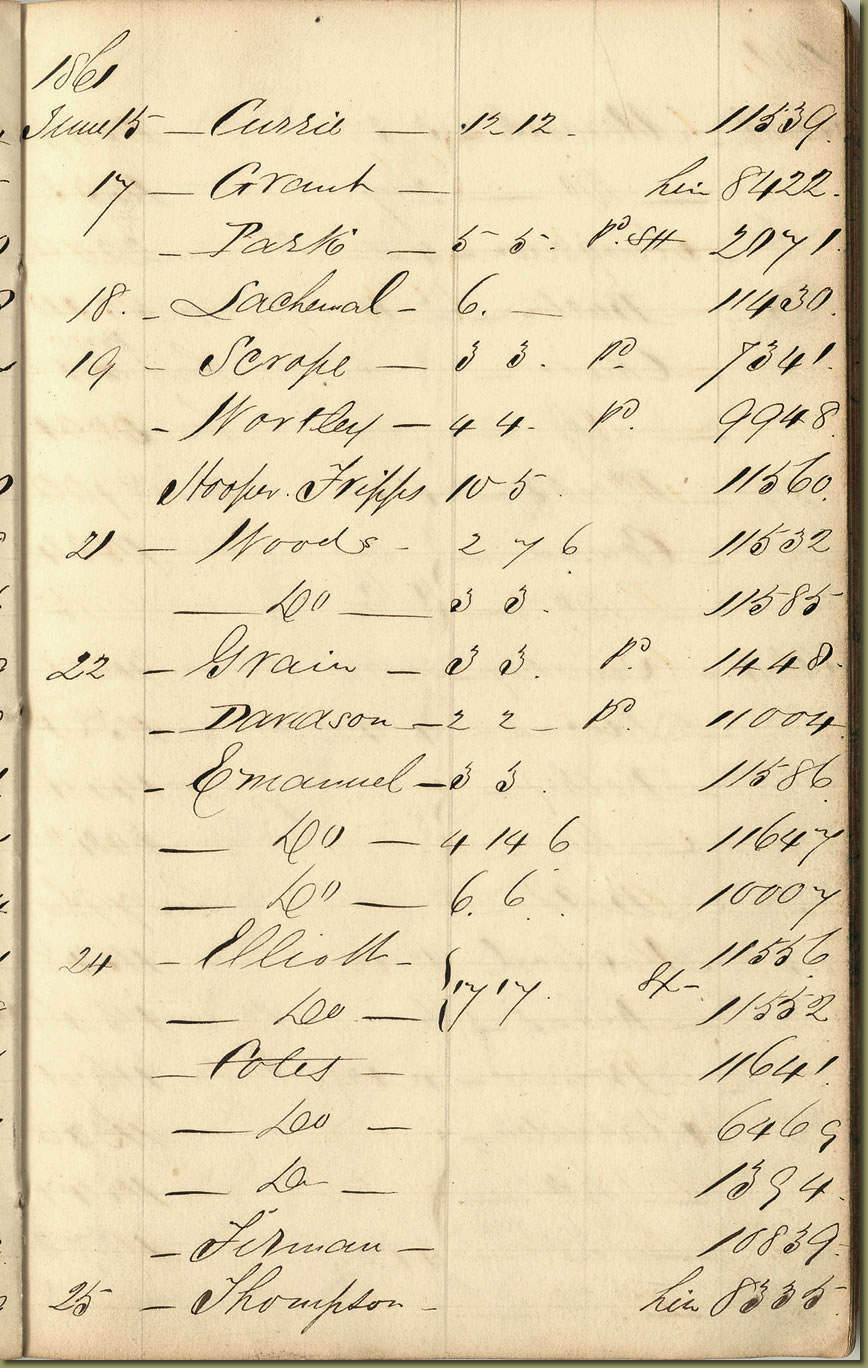 1861
June 15 — Currie — 12 12 . 11539.
17 — Grant — hire 8422.
— Park — 5 5 . Pd. 2071.
18. — Lachenal — 6. — 11430.
19 — Scrope — 3 3 . Pd. 7341.
— Wortley — 4 4 - Pd. 9948.
Hooper. Fripps 10 5 . 11560.
21 — Woods - 2 7 6 11532
— Do — 3 3 . 11585
22 — Grain — 3 3 . Pd. 1448.
— Davidson — 2 2 — Pd. 11004.
— Emanuel — 3 3 . 11586
— Do — 4 14 6 11647
— Do — 6. 6 . 10007
24 — Elliott — 11556
— Do — { 17 17 . 11552
— Potes — 11641
— Do — 6469
— Do — 1394.
— Firman — 10839.
25 — Thompson — hire 8335.